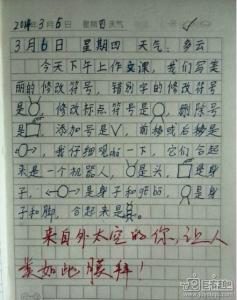 2014年3月6日 星期 天气
3月6日 星期四 天气：多云
今天下午上作文课，我们写美
丽的修改符号，错别字的修改符号
是 ，修改标点符号是 ，删除号
是 添加号是∨，前移或后移是
，我仔细观 一下，它们合起
来是一个机器人， 是头， 是身
子， 是身子和 ， 是身
子和脚，合起来是
来自外太空的你，让人
类如此膜拜！